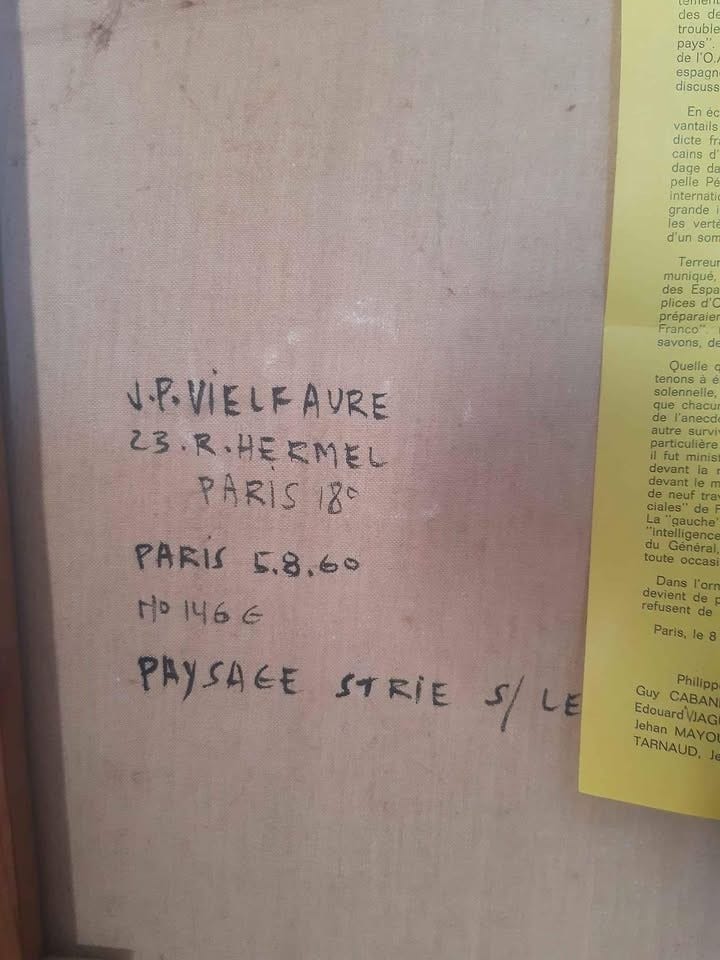 J.P. VIELFAURE
23. R. HERMEL
PARIS 18°
PARIS 5.8.60
No 146 G
PAYSAGE STRIE S/ LE
des de
trouble
pays".
de l'O.A
espagn
discuss
En éc
vantails
dicte fra
cains d'
dage da
pelle Pé
internati
grande i
les verté
d'un som
Terreur
muniqué,
des Espa
plices d'O
préparaien
Franco".
savons, de
Quelle q
tenons à é
solennelle,
que chacun
de l'anecdo
autre surviv
particulière
il fut minist
devant la r
devant le m
de neuf trav
ciales" de F
La "gauche"
"intelligence
du Général,
toute occasi
Dans l'orn
devient de p
refusent de
Paris, le 8
Philippe
Guy CABAN
Edouard JAGU
Jehan MAYOU
TARNAUD, Je